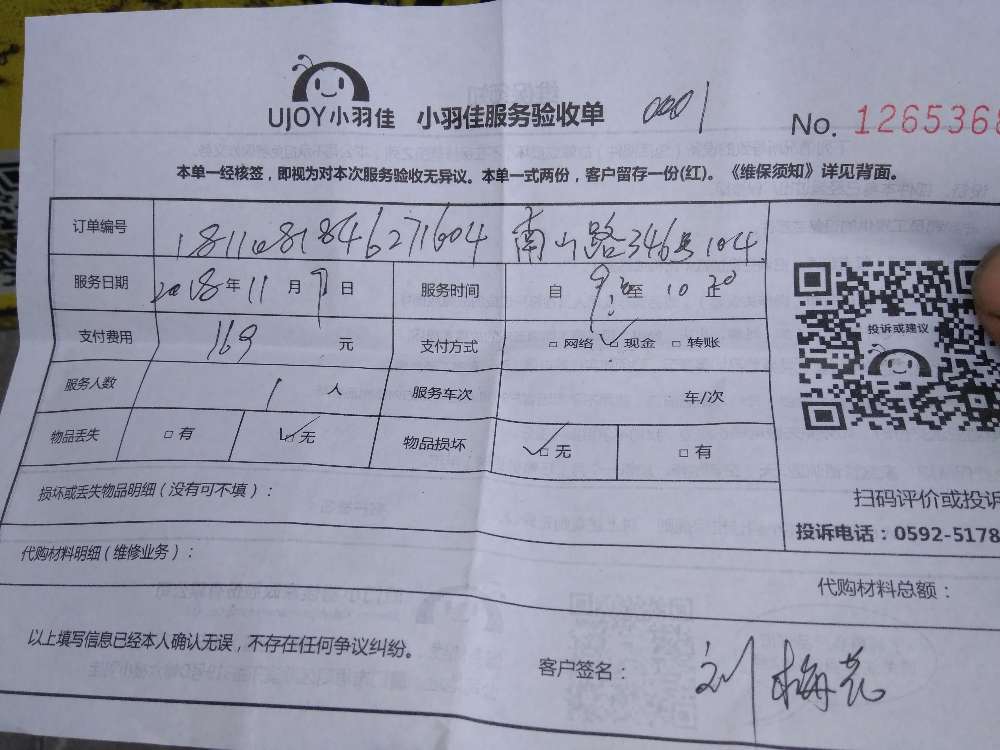 UJOY小羽佳 小羽佳服务验收单 0001
No. 1265368
本单一经核签，即视为对本次服务验收无异议。本单一式两份，客户留存一份(红)。《维保须知》详见背面。
订单编号 1811081846271604 南山路346号104
服务日期 2018年11月9日 服务时间 自9:30至10:30止
支付费用 169元 支付方式 □网络 ☑现金 □转账
服务人数 1人 服务车次 车/次
物品丢失 □有 ☑无 物品损坏 ☑无 □有
投诉或建议
损坏或丢失物品明细（没有可不填）：
扫码评价或投诉
投诉电话：0592-5178
代购材料明细（维修业务）：
代购材料总额：
以上填写信息已经本人确认无误，不存在任何争议纠纷。
客户签名：刘梅花